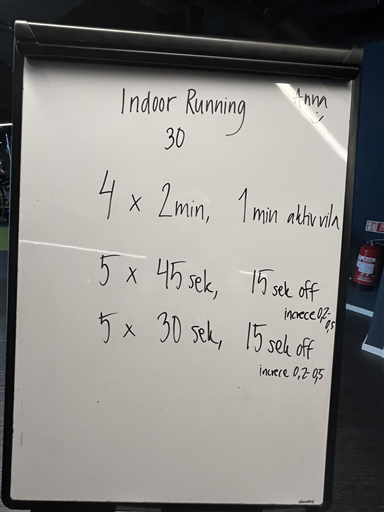 Indoor Running
Anna
30
4 x 2 min, 1 min aktiv vila
5 x 45 sek, 15 sek off
increce 0,2-0,5
5 x 30 sek, 15 sek off
increce 0,2-0,5